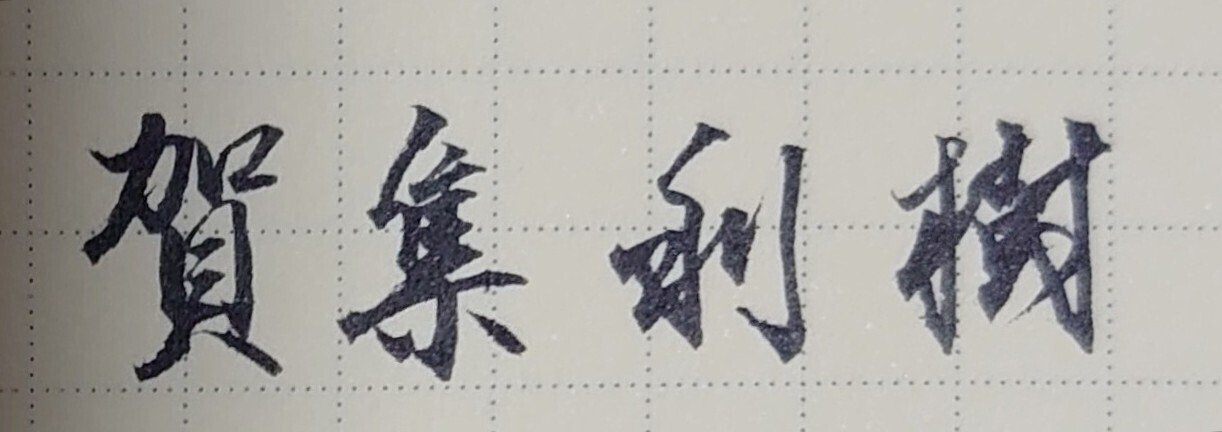 賀集利樹